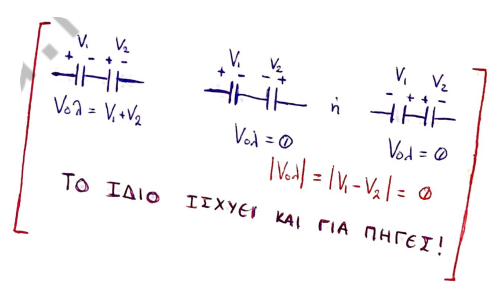 V₁ V₂
+ - + -
V₀λ = V₁+V₂
V₁ V₂
+ - - +
V₀λ = 0
ή
V₁ V₂
- + + -
V₀λ = 0
|V₀λ| = |V₁ - V₂| = 0
ΤΟ ΙΔΙΟ ΙΣΧΥΕΙ ΚΑΙ ΓΙΑ ΠΗΓΕΣ!